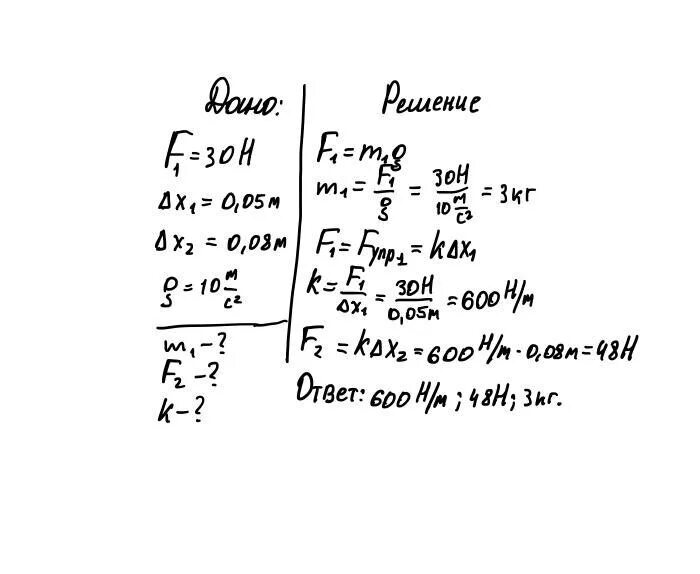 Дано:
F₁ = 30 Н
Δx₁ = 0,05 м
Δx₂ = 0,08 м
g = 10 м/с²
m₁ – ?
F₂ – ?
k – ?
Решение
F₁ = m₁g
m₁ = F₁/g = 30 Н/10 м/с² = 3 кг
F₁ = Fупр₁ = kΔx₁
k = F₁/Δx₁ = 30 Н/0,05 м = 600 Н/м
F₂ = kΔx₂ = 600 Н/м · 0,08 м = 48 Н
Ответ: 600 Н/м ; 48 Н ; 3 кг.